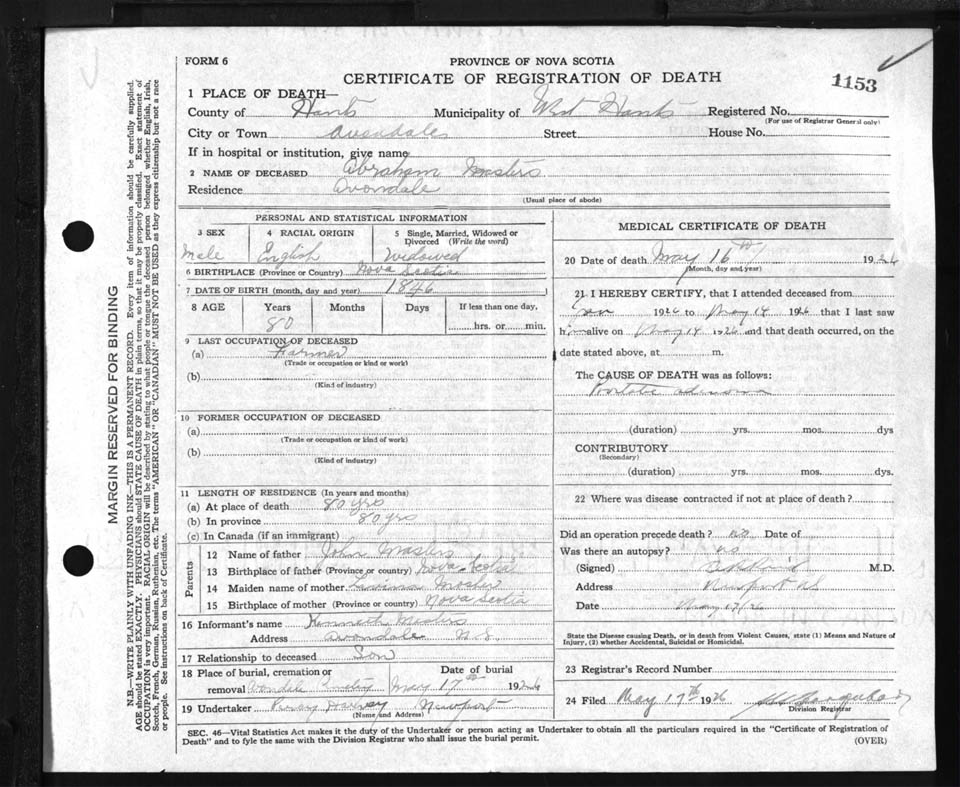 FORM 6
PROVINCE OF NOVA SCOTIA
CERTIFICATE OF REGISTRATION OF DEATH
1153
1 PLACE OF DEATH—
County of Hants Municipality of West Hants Registered No.
(For use of Registrar General only)
City or Town Avondale Street House No.
If in hospital or institution, give name
2 NAME OF DECEASED Abraham Masters
Residence Avondale
(Usual place of abode)
PERSONAL AND STATISTICAL INFORMATION
3 SEX 4 RACIAL ORIGIN 5 Single, Married, Widowed or Divorced (Write the word)
Male English Widowed
6 BIRTHPLACE (Province or Country) Nova Scotia
7 DATE OF BIRTH (month, day and year) 1846
8 AGE Years Months Days If less than one day,
80 hrs. or min.
9 LAST OCCUPATION OF DECEASED
(a) Farmer
(Trade or occupation or kind or work)
(b)
(Kind of industry)
10 FORMER OCCUPATION OF DECEASED
(a)
(Trade or occupation or kind of work)
(b)
(Kind of industry)
11 LENGTH OF RESIDENCE (In years and months)
(a) At place of death 80 yrs
(b) In province 80 yrs
(c) In Canada (if an immigrant)
Parents
12 Name of father John Masters
13 Birthplace of father (Province or country) Nova Scotia
14 Maiden name of mother Mosher
15 Birthplace of mother (Province or country) Nova Scotia
16 Informant's name Kenneth Masters
Address Avondale N.S.
17 Relationship to deceased Son
18 Place of burial, cremation or removal Avondale Cemetery Date of burial May 17th 1926
19 Undertaker Harvey Newport
(Name and Address)
MEDICAL CERTIFICATE OF DEATH
20 Date of death May 16th 1926
(Month, day and year)
21 I HEREBY CERTIFY, that I attended deceased from
Jan 1926 to May 14 1926 that I last saw
him alive on May 14 1926 and that death occurred, on the
date stated above, at m.
The CAUSE OF DEATH was as follows:
(duration) yrs. mos. dys
CONTRIBUTORY
(Secondary)
(duration) yrs. mos. dys.
22 Where was disease contracted if not at place of death?
Did an operation precede death? no Date of
Was there an autopsy? no
(Signed) M.D.
Address Newport NS
Date May 17/26
State the Disease causing Death, or in death from Violent Causes, state (1) Means and Nature of
Injury, (2) whether Accidental, Suicidal or Homicidal.
23 Registrar's Record Number
24 Filed May 17th 1926
Division Registrar
SEC. 46—Vital Statistics Act makes it the duty of the Undertaker or person acting as Undertaker to obtain all the particulars required in the "Certificate of Registration of
Death" and to fyle the same with the Division Registrar who shall issue the burial permit.
(OVER)
MARGIN RESERVED FOR BINDING
N.B.—WRITE PLAINLY WITH UNFADING INK—THIS IS A PERMANENT RECORD. Every item of information should be carefully supplied.
AGE should be stated EXACTLY. PHYSICIANS should STATE CAUSE OF DEATH in plain terms, so that it may be properly classified. Exact statement of
OCCUPATION is very important. RACIAL ORIGIN will be described by stating to what people or tongue the deceased person belonged whether English, Irish,
Scotch, French, German, Russian, Ruthenian, etc. The terms "AMERICAN" OR "CANADIAN" MUST NOT BE USED as they express citizenship but not a race
or people. See instructions on back of Certificate.